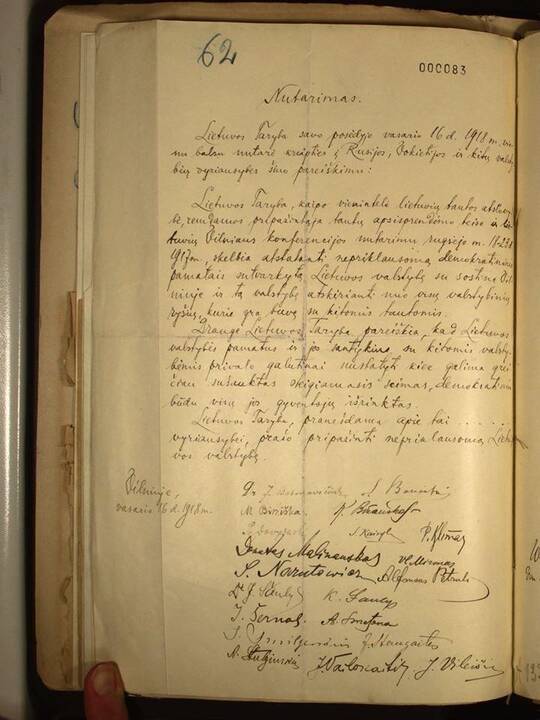 62
000083
Nutarimas.
Lietuvos Taryba savo posėdyje vasario 16 d. 1918 m. vie-
nu balsu nutarė kreipties į Rusijos, Vokietijos ir kitų valsty-
bių vyriausybes šiuo pareiškimu:
Lietuvos Taryba, kaipo vienintelė lietuvių tautos atstovy-
bė, remdamos pripažintąja tautų apsisprendimo teise ir lie-
tuvių Vilniaus konferencijos nutarimu rugsėjo m. 18-23 d.
1917 m., skelbia atstatanti nepriklausomą demokratiniais
pamatais sutvarkytą Lietuvos valstybę su sostine Vil-
niuje ir tą valstybę atskirianti nuo visų valstybinių
ryšių, kurie yra buvę su kitomis tautomis.
Drauge Lietuvos Taryba pareiškia, kad Lietuvos
valstybės pamatus ir jos santykius su kitomis valsty-
bėmis privalo galutinai nustatyti kiek galima grei-
čiau sušauktas steigiamasis seimas, demokratiniu
būdu visų jos gyventojų išrinktas.
Lietuvos Taryba, pranešdama apie tai . . . . .
vyriausybei, prašo pripažinti nepriklausomą Lietu-
vos valstybę.
Vilniuje,
vasario 16 d. 1918 m.
Dr J. Basanavičius S. Banaitis
M. Biržiška K. Bizauskas
S. Kairys P. Klimas
Donatas Malinauskas Vl. Mironas
S. Narutowicz Alfonsas Petrulis
Dr J. Šaulys K. Šaulys
J. Šernas A. Smetona
J. Smilgevičius J. Staugaitis
A. Stulginskis J. Vailokaitis J. Vileišis